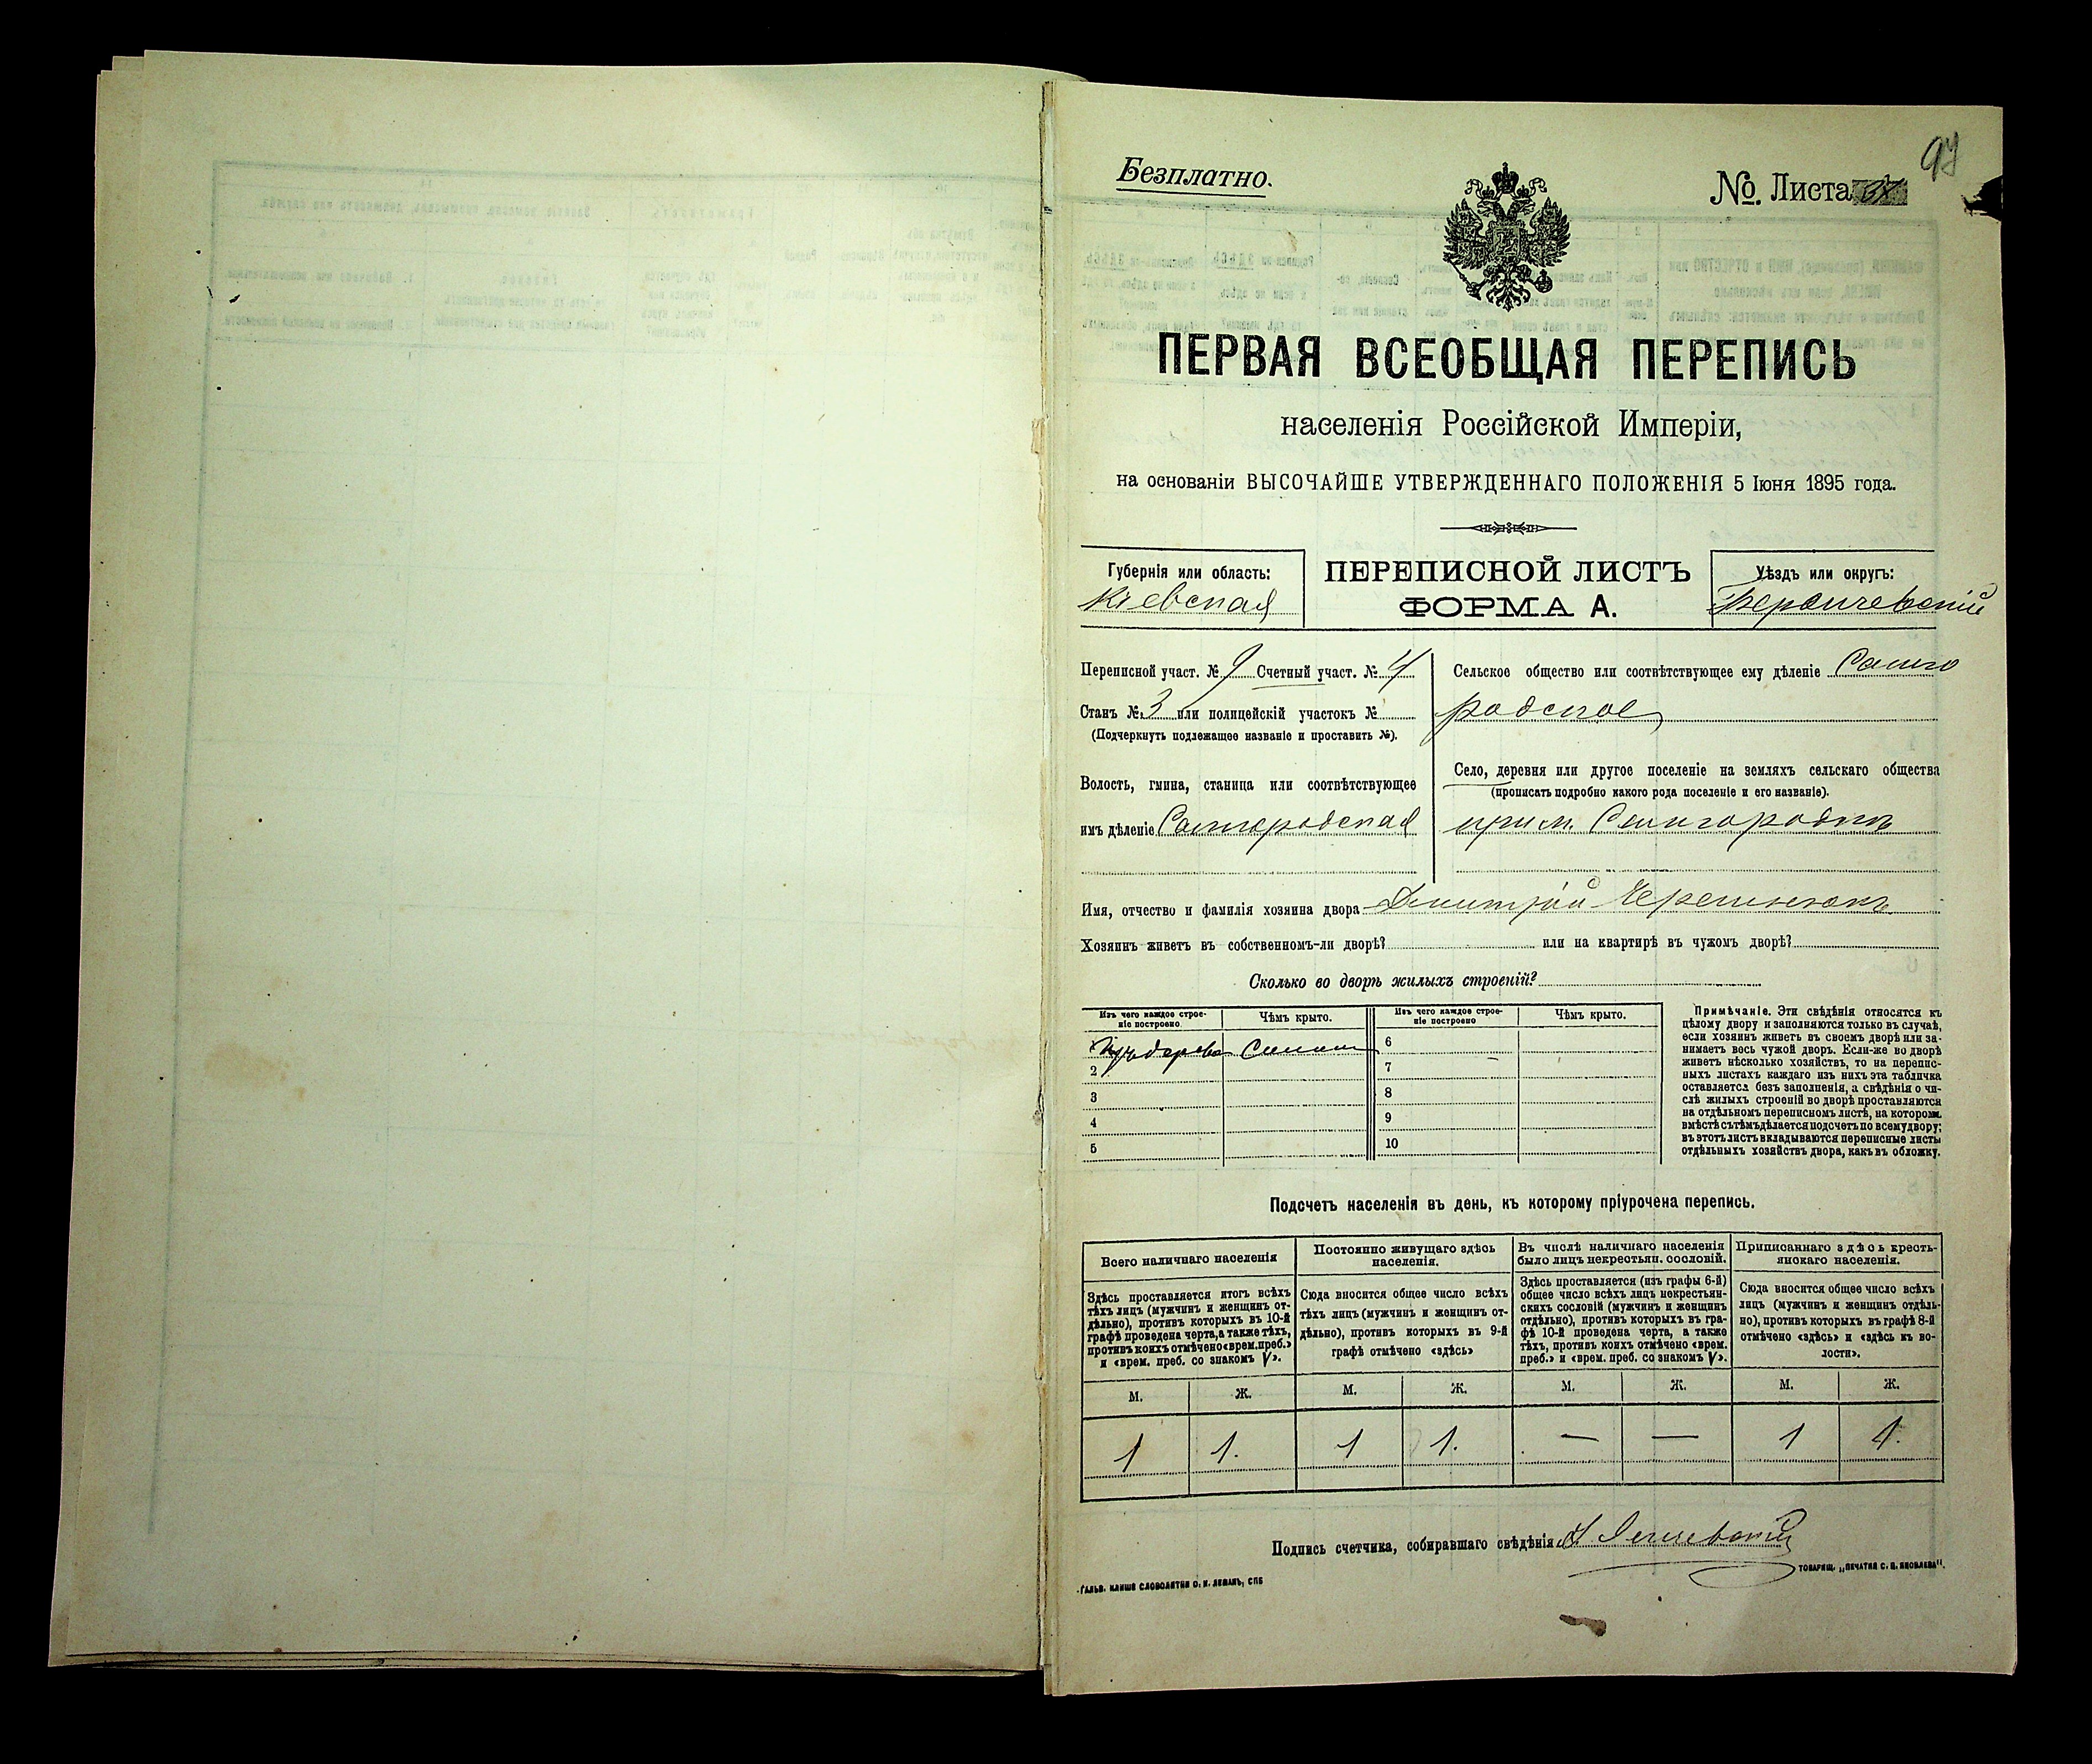 97
Безплатно.
№. Листа
ПЕРВАЯ ВСЕОБЩАЯ ПЕРЕПИСЬ
населенія Россійской Имперіи,
на основаніи ВЫСОЧАЙШЕ УТВЕРЖДЕННАГО ПОЛОЖЕНІЯ 5 Іюня 1895 года.
Губернія или область:
Кіевская
ПЕРЕПИСНОЙ ЛИСТЪ
ФОРМА А.
Уѣздъ или округъ:
Бердичевскій
Переписной участ. № 9 Счетный участ. № 4
Станъ №. 3 или полицейскій участокъ №
(Подчеркнуть подлежащее названіе и проставить №).
Волость, гмина, станица или соотвѣтствующее
имъ дѣленіе Самгородская
Сельское общество или соотвѣтствующее ему дѣленіе Самго
родское
Село, деревня или другое поселеніе на земляхъ сельскаго общества
(прописать подробно какого рода поселеніе и его названіе).
при м. Самгородкѣ
Имя, отчество и фамилія хозяина двора Дмитрій
Хозяинъ живетъ въ собственномъ-ли дворѣ? или на квартирѣ въ чужомъ дворѣ?
Сколько во дворѣ жилыхъ строеній?
Изъ чего каждое строе-
ніе построено
Чѣмъ крыто.
Изъ чего каждое строе-
ніе построено
Чѣмъ крыто.
Изъ дерева
2
3
4
5
6
7
8
9
10
Примѣчаніе. Эти свѣдѣнія относятся къ
цѣлому двору и заполняются только въ случаѣ,
если хозяинъ живетъ въ своемъ дворѣ или за-
нимаетъ весь чужой дворъ. Если-же во дворѣ
живетъ нѣсколько хозяйствъ, то на перепис-
ныхъ листахъ каждаго изъ нихъ эта табличка
оставляется безъ заполненія, а свѣдѣнія о чи-
слѣ жилыхъ строеній во дворѣ проставляются
на отдѣльномъ переписномъ листѣ, на которомъ
вмѣстѣ съ тѣмъ дѣлается подсчетъ по всему двору;
въ этотъ листъ вкладываются переписные листы
отдѣльныхъ хозяйствъ двора, какъ въ обложку.
Подсчетъ населенія въ день, къ которому пріурочена перепись.
Всего наличнаго населенія
Здѣсь проставляется итогъ всѣхъ
тѣхъ лицъ (мужчинъ и женщинъ от-
дѣльно), противъ которыхъ въ 10-й
графѣ проведена черта, а также тѣхъ,
противъ коихъ отмѣчено «врем. преб.»
и «врем. преб. со знакомъ V».
Постоянно живущаго здѣсь
населенія.
Сюда вносится общее число всѣхъ
тѣхъ лицъ (мужчинъ и женщинъ от-
дѣльно), противъ которыхъ въ 9-й
графѣ отмѣчено «здѣсь»
Въ числѣ наличнаго населенія
было лицъ некрестьян. сословій.
Здѣсь проставляется (изъ графы 6-й)
общее число всѣхъ лицъ некрестьян-
скихъ сословій (мужчинъ и женщинъ
отдѣльно), противъ которыхъ въ гра-
фѣ 10-й проведена черта, а также
тѣхъ, противъ коихъ отмѣчено «врем.
преб.» и «врем. преб. со знакомъ V».
Приписаннаго здѣсь кресть-
янскаго населенія.
Сюда вносится общее число всѣхъ
лицъ (мужчинъ и женщинъ отдѣль-
но), противъ которыхъ въ графѣ 8-й
отмѣчено «здѣсь» и «здѣсь въ во-
лости».
М. Ж. М. Ж. М. Ж. М. Ж.
1 1. 1 1. — — 1 1.
Подпись счетчика, собиравшаго свѣдѣнія
ГАЛЬВ. КЛИШЕ СЛОВОЛИТНИ О. И. ЛЕМАНЪ, СПБ
ТОВАРИЩ. „ПЕЧАТНЯ С. П. ЯКОВЛЕВА".